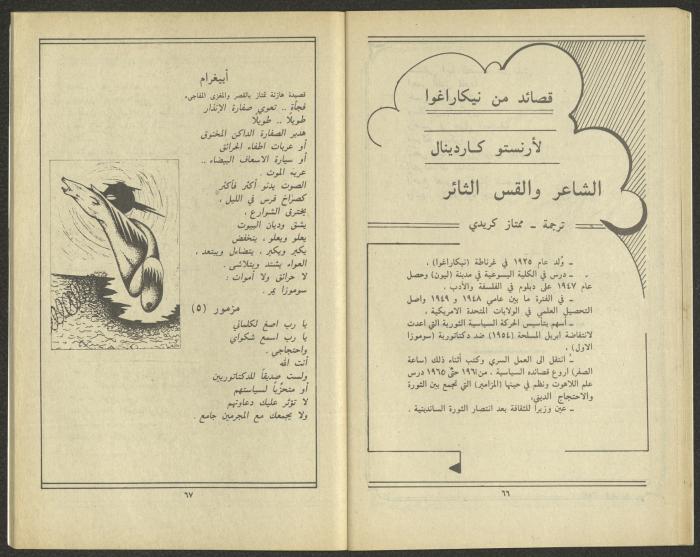 قصائد من نيكاراغوا
لأرنستو كاردينال
الشاعر والقس الثائر
ترجمة ـ ممتاز كريدي
ـ وُلد عام ١٩٢٥ في غرناطة (نيكاراغوا) ،
ـ درس في الكلية اليسوعية في مدينة (ليون) وحصل
عام ١٩٤٧ على دبلوم في الفلسفة والأدب .
ـ في الفترة ما بين عامي ١٩٤٨ و ١٩٤٩ واصل
التحصيل العلمي في الولايات المتحدة الامريكية .
ـ أسهم بتأسيس الحركة السياسية الثورية التي اعدت
لانتفاضة ابريل المسلحة (١٩٥٤) ضد دكتاتورية (سوموزا
الاول) .
ـ انتقل الى العمل السري وكتب أثناء ذلك (ساعة
الصفر) أروع قصائده السياسية ، من ١٩٦١ حتى ١٩٦٥ درس
علم اللاهوت ونظم في حينها (المزامير) التي تجمع بين الثورة
والاحتجاج الديني
ـ عين وزيراً للثقافة بعد انتصار الثورة الساندينية .
٦٦
أبيغرام
قصيدة هازئة تمتاز بالقصر والمغزى المفاجيء
فجأة .. تعوي صفارة الإنذار
طويلاً .. طويلاً
هدير الصفارة الداكن المخنوق
أو عربات اطفاء الحرائق
أو سيارة الاسعاف البيضاء ..
عربة الموت .
الصوت يدنو أكثر فأكثر
كصراخ فرس في الليل ،
يخترق الشوارع ،
يشق وديان البيوت
يعلو ويعلو ، ينخفض
يكبر ويكبر ، يتضاءل ويبتعد ،
العواء يشتد ويتلاشى .
لا حرائق ولا أموات :
سوموزا يمر .
مزمور (٥)
يا رب اصغ لكلماتي
يا رب اسمع شكواي
واحتجاجي .
أنت الله
ولست صديقاً للدكتاتوريين
أو متحزّباً لسياستهم
لا تؤثر عليك دعاوتهم
ولا يجمعك مع المجرمين جامع .
٦٧